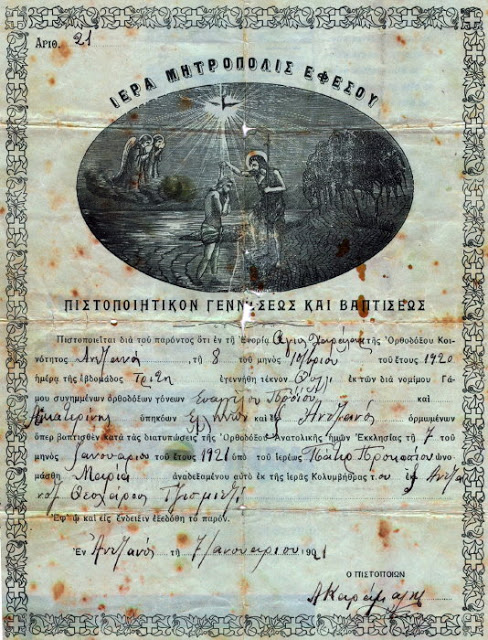 Αριθ. 21
ΙΕΡΑ ΜΗΤΡΟΠΟΛΙΣ ΕΦΕΣΟΥ
ΠΙΣΤΟΠΟΙΗΤΙΚΟΝ ΓΕΝΝΗΣΕΩΣ ΚΑΙ ΒΑΠΤΙΣΕΩΣ
Πιστοποιείται διά του παρόντος ότι εν τη Ενορία Αγίου Χαραλάμπους της Ορθοδόξου Κοι-
νότητος τη 8 του μηνός 10βρίου του έτους 1920
ημέρα της εβδομάδος Τρίτη εγεννήθη τέκνον θήλυ εκ των διά νομίμου Γά-
μου συνημμένων ορθοδόξων γονέων Ευαγγέλου και
Αικατερίνης υπηκόων Ελλήνων και εξ ορμωμένων
όπερ βαπτισθέν κατά τας διατυπώσεις της Ορθοδόξου Ανατολικής ημών Εκκλησίας τη 7 του
μηνός Ιανουαρίου του έτους 1921 υπό του Ιερέως Πάπα Προκοπίου ωνο-
μάσθη Μαρία αναδεξαμένου αυτό εκ της ιεράς Κολυμβήθρας του εξ
Θεοχάρους
Εφ' ω και εις ένδειξιν εξεδόθη το παρόν.
Εν τη 7 Ιανουαρίου 1921
Ο ΠΙΣΤΟΠΟΙΩΝ